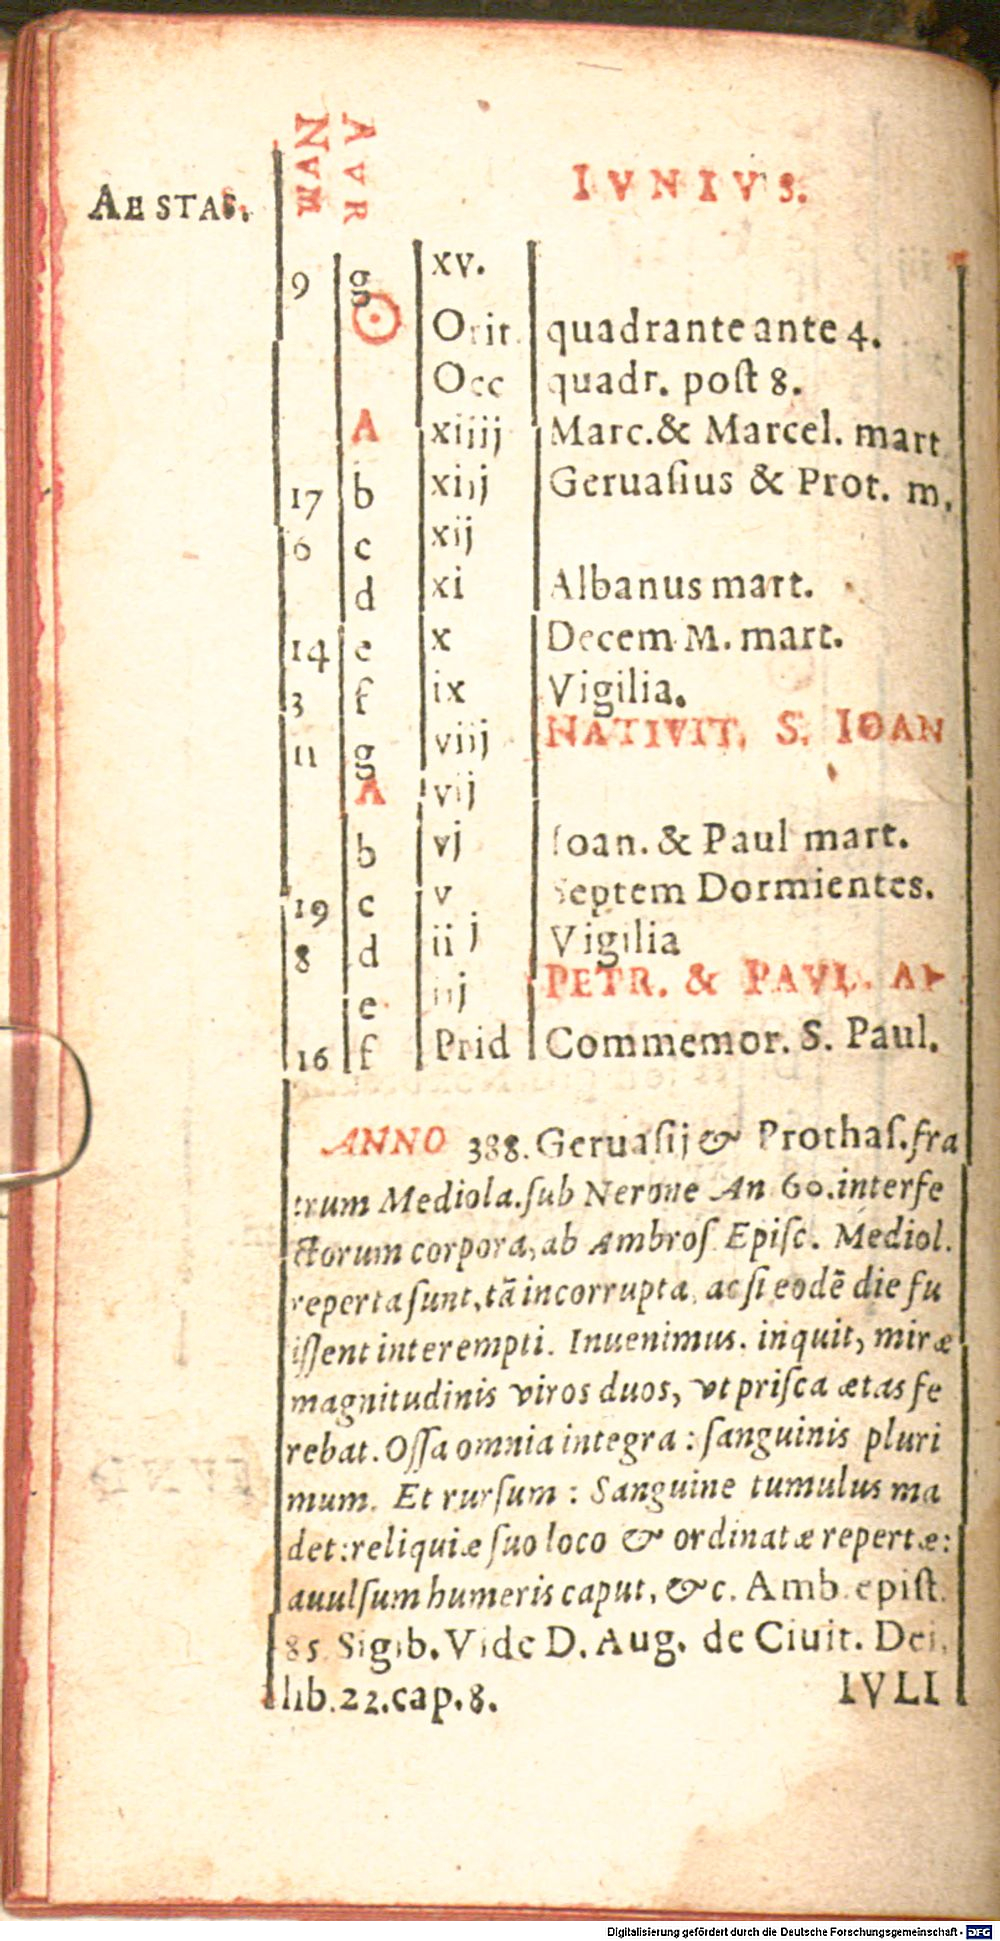 AESTAS.
IVNIVS.
9 g xv.
Orit quadrante ante 4.
Occ quadr. poſt 8.
A xiiij Marc. & Marcel. mart
17 b xiij Geruaſius & Prot. m.
6 c xij
d xi Albanus mart.
14 e x Decem M. mart.
3 f ix Vigilia.
11 g viij NATIVIT. S. IOAN
A vij
b vj Ioan. & Paul mart.
19 c v Septem Dormientes.
8 d iiij Vigilia
e iij PETR. & PAVL. AP
16 f Prid Commemor. S. Paul.
ANNO 388. Geruaſij & Prothaſ. fra
trum Mediola. ſub Nerone An 60. interfe
ctorum corpora, ab Ambroſ Epiſc. Mediol.
reperta ſunt, tā incorrupta, ac ſi eodē die fu
iſſent interempti. Inuenimus. inquit, miræ
magnitudinis viros duos, vt priſca ætas fe
rebat. Oſſa omnia integra : ſanguinis pluri
mum. Et rurſum : Sanguine tumulus ma
det: reliquiæ ſuo loco & ordinatæ repertæ:
auulſum humeris caput, &c. Amb. epiſt.
85 Sigib. Vide D. Aug. de Ciuit. Dei.
lib. 22. cap. 8. IVLI
Digitalisierung gefördert durch die Deutsche Forschungsgemeinschaft - DFG